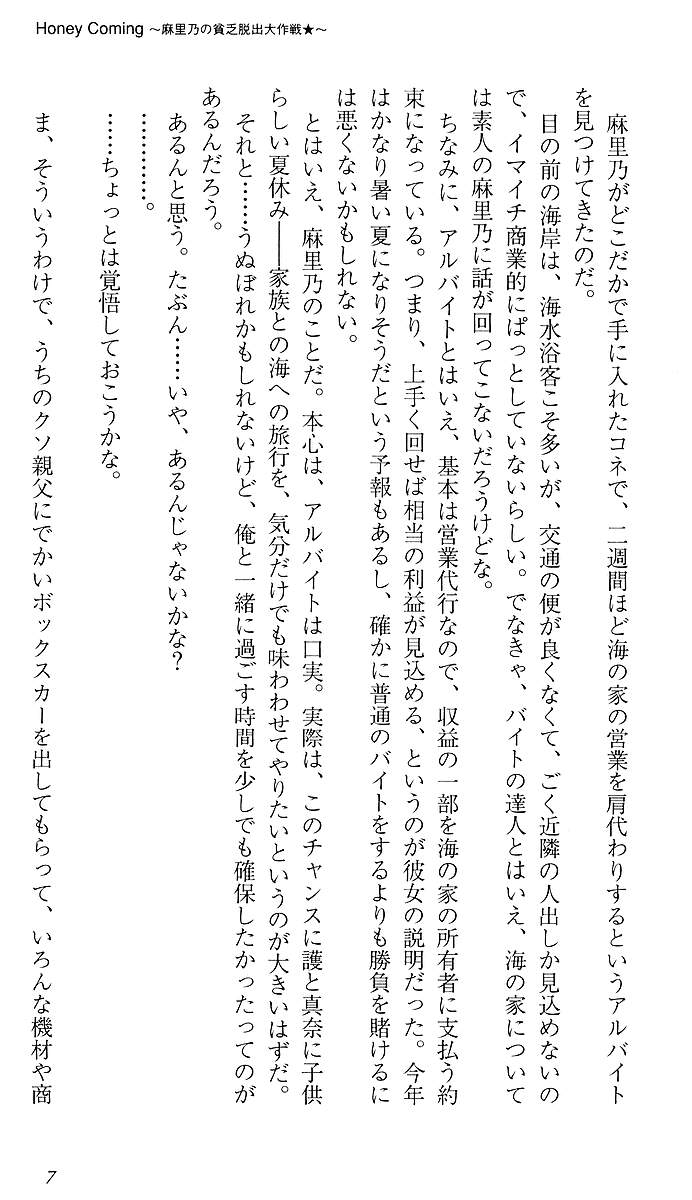 Honey Coming ～麻里乃の貧乏脱出大作戦★～
麻里乃がどこだかで手に入れたコネで、二週間ほど海の家の営業を肩代わりするというアルバイト
を見つけてきたのだ。
目の前の海岸は、海水浴客こそ多いが、交通の便が良くなくて、ごく近隣の人出しか見込めないの
で、イマイチ商業的にぱっとしていないらしい。でなきゃ、バイトの達人とはいえ、海の家について
は素人の麻里乃に話が回ってこないだろうけどな。
ちなみに、アルバイトとはいえ、基本は営業代行なので、収益の一部を海の家の所有者に支払う約
束になっている。つまり、上手く回せば相当の利益が見込める、というのが彼女の説明だった。今年
はかなり暑い夏になりそうだという予報もあるし、確かに普通のバイトをするよりも勝負を賭けるに
は悪くないかもしれない。
とはいえ、麻里乃のことだ。本心は、アルバイトは口実。実際は、このチャンスに護と真奈に子供
らしい夏休み――家族との海への旅行を、気分だけでも味わわせてやりたいというのが大きいはずだ。
それと……うぬぼれかもしれないけど、俺と一緒に過ごす時間を少しでも確保したかったってのが
あるんだろう。
あるんと思う。たぶん……いや、あるんじゃないかな？
…………。
……ちょっとは覚悟しておこうかな。
ま、そういうわけで、うちのクソ親父にでかいボックスカーを出してもらって、いろんな機材や商
7